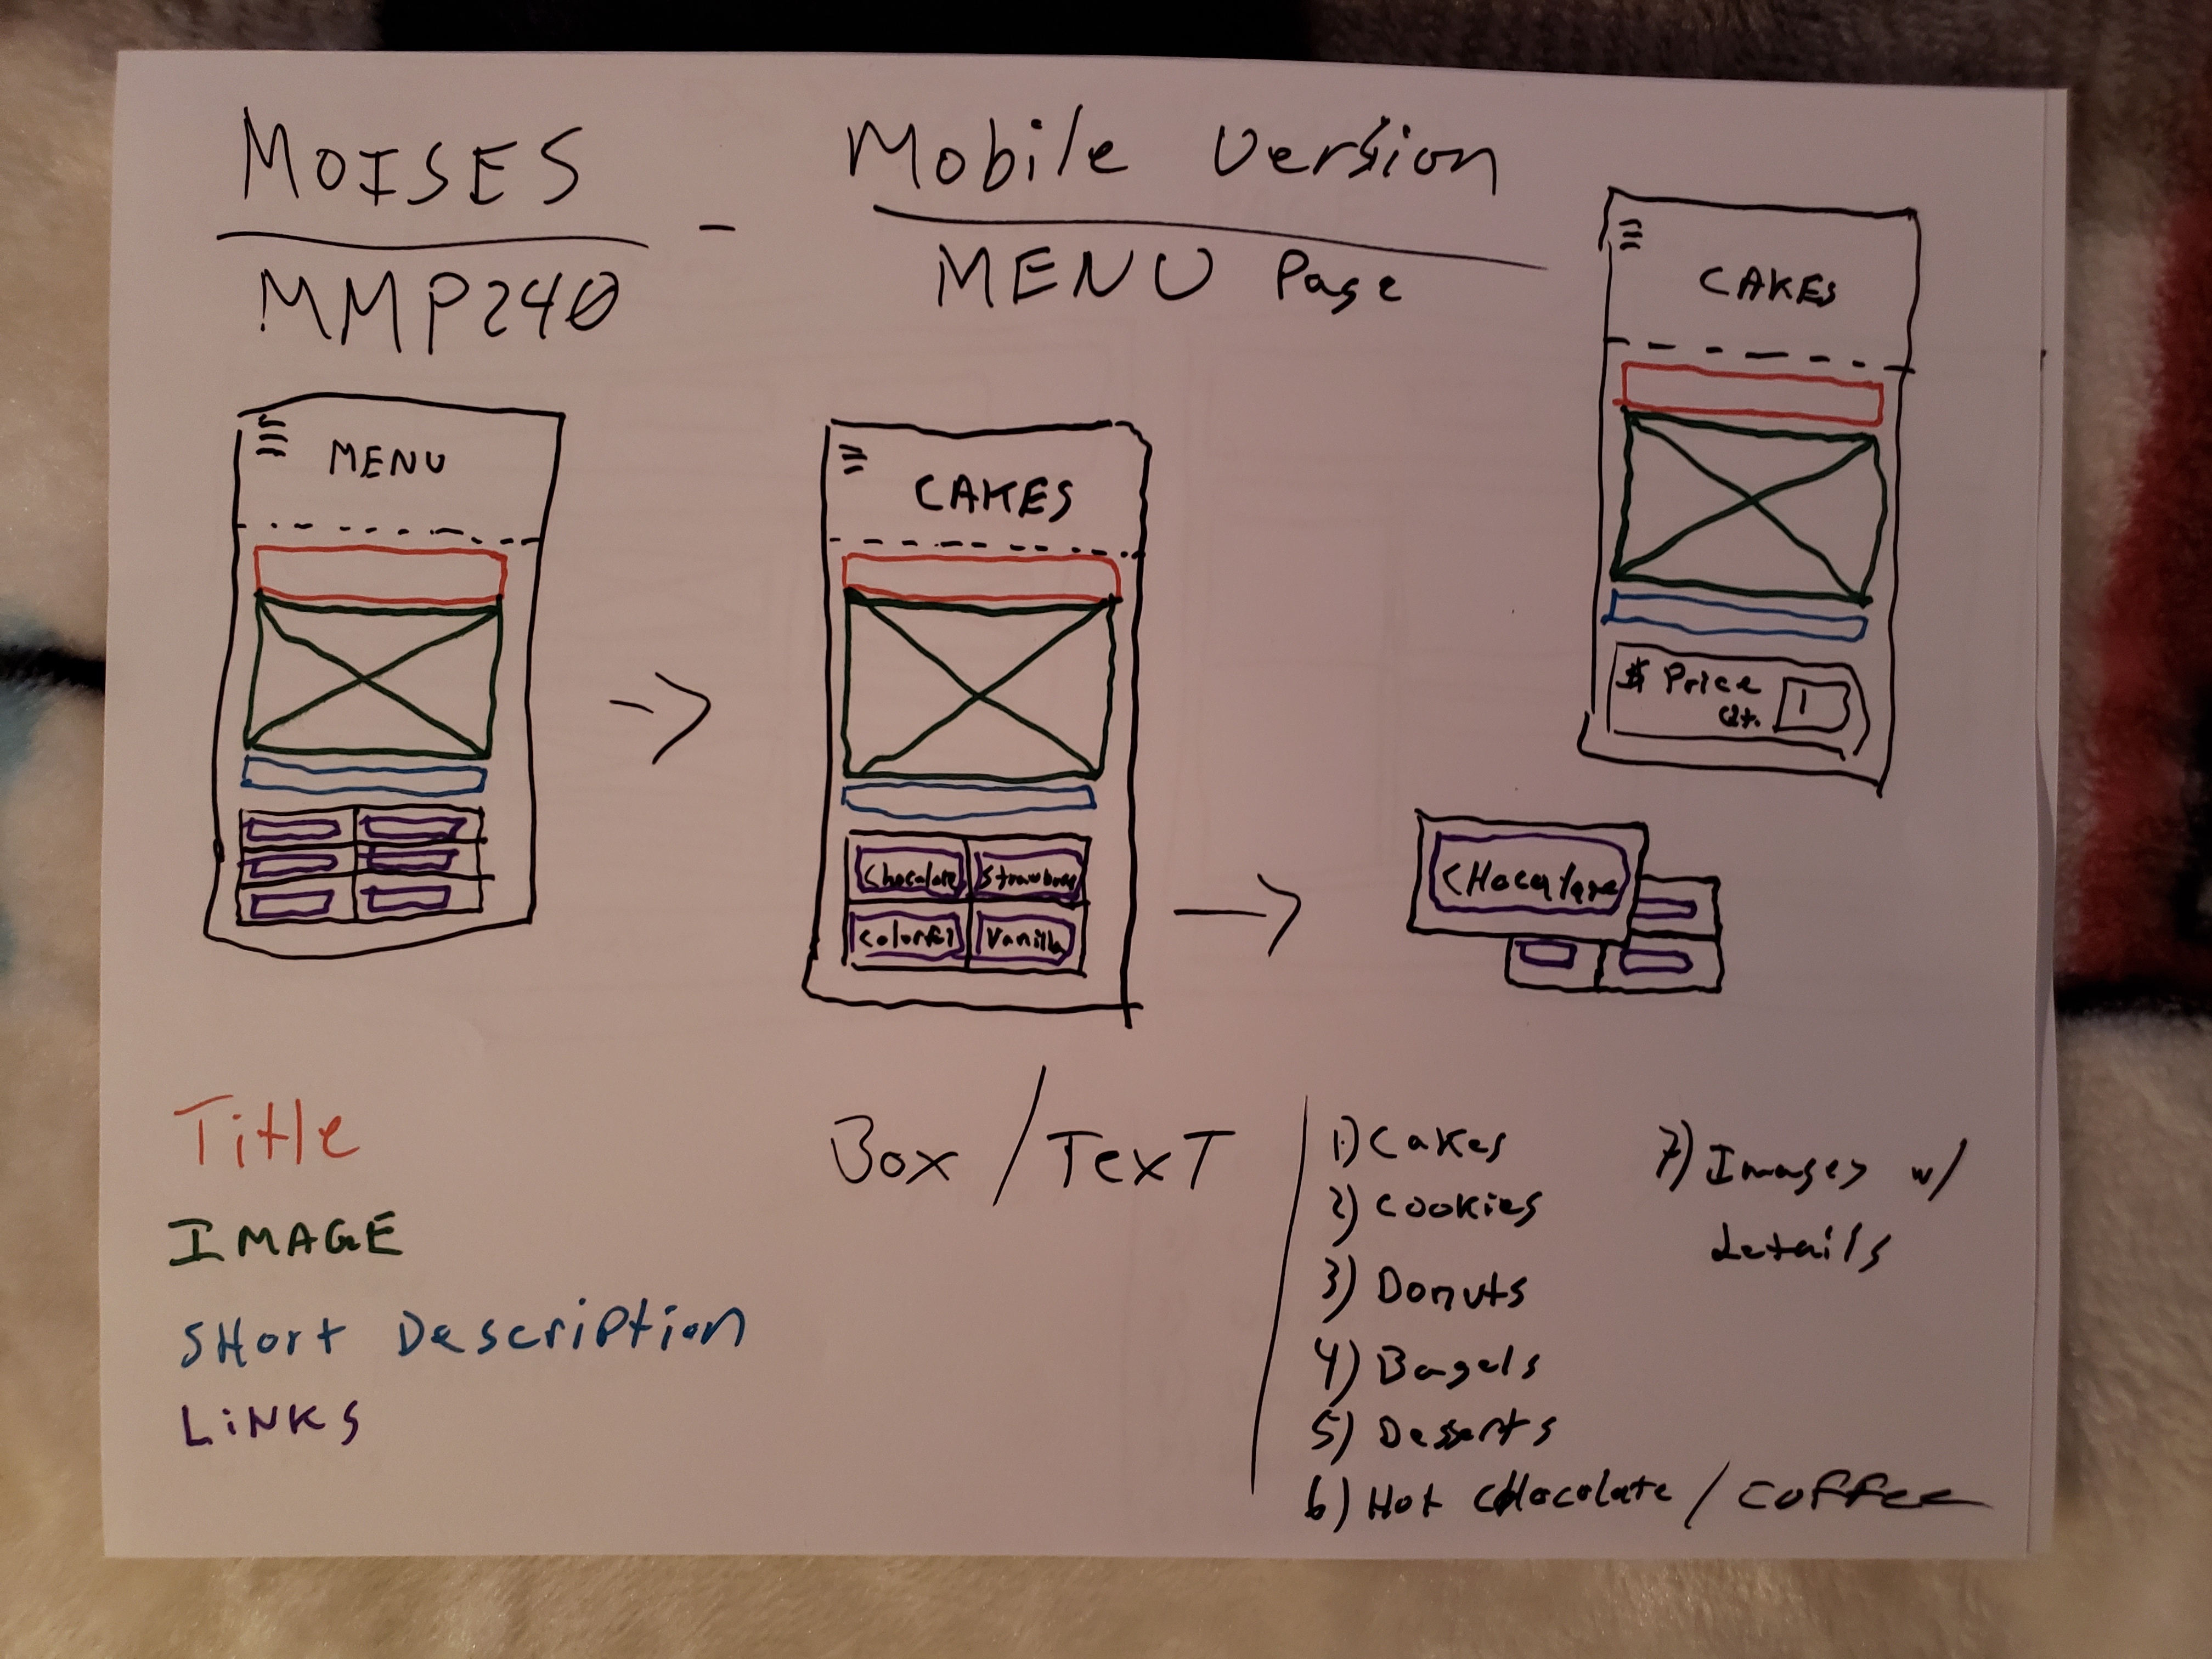 MOISES
MMP240
-
Mobile Version
MENU Page
MENU
CAKES
Chocolate
Strawberry
Colorful
Vanilla
CHocolate
CAKES
$ Price
Qt.
1
Title
IMAGE
SHort Description
LiNKS
Box / TexT
1) Cakes
2) Cookies
3) Donuts
4) Bagels
5) Desserts
6) Hot CHocolate / Coffee
7) Images w/
details